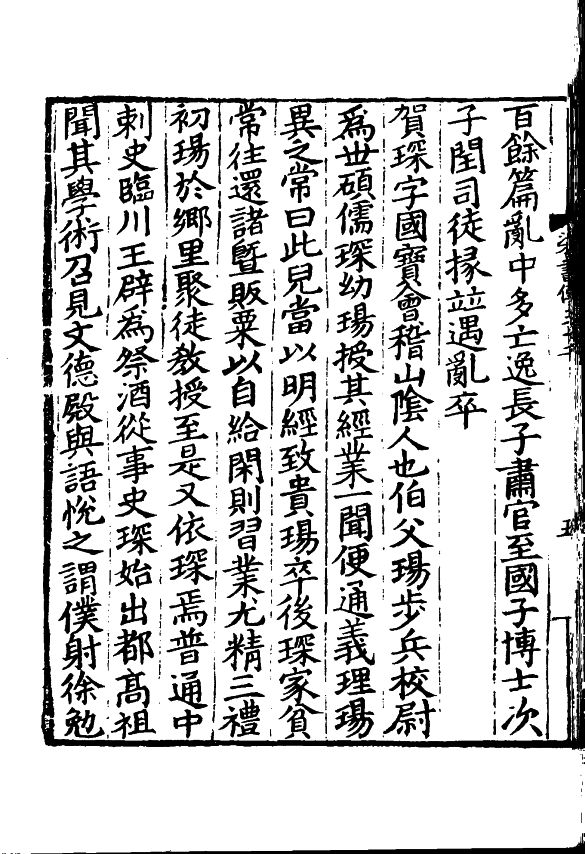 百餘篇亂中多亡逸長子肅官至國子博士次
子閏司徒掾竝遇亂卒
賀琛字國寶會稽山隂人也伯父瑒步兵校尉
爲世碩儒琛幼瑒授其經業一聞便通義理瑒
異之常曰此兒當以明經致貴瑒卒後琛家貧
常往還諸暨販粟以自給閑則習業尤精三禮
初瑒於鄉里聚徒敎授至是又依琛焉普通中
刺史臨川王辟爲祭酒從事史琛始出都髙祖
聞其學術召見文德殿與語悅之謂僕射徐勉